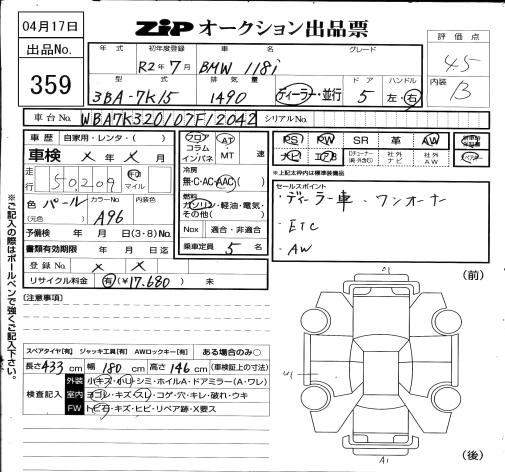 04月17日
ZIP オークション出品票
出品No.
359
評価点
4.5
内装
B
年式 初年度登録 車名 グレード
R2年7月 BMW 118i
型式 排気量 ドア ハンドル
3BA-7K15 1490 ディーラー・並行 5 左・右
車台No. WBA7K320107F12042 シリアルNo.
車歴 自家用・レンタ・( )
車検 × 年 × 月
走行 50,209 km マイル
色 (元色) パール カラーNo. A96 内装色
予備検 年 月(3・8)No.
書類有効期限 年 月 日迄
登録No. × ×
リサイクル料金 有(¥17,680) 未
フロア コラム インパネ AT MT 速
冷房 無・C・AC・AAC
燃料 ガソリン・軽油・電気・その他( )
Nox 適合・非適合
乗車定員 5 名
PS PW SR 革 AW
ナビ エアB 社外ナビ 社外AW
※上記太枠内は標準装備品
セールスポイント
・ディーラー車 ・ワンオーナー
・ETC
・AW
(注意事項)
スペアタイヤ[有] ジャッキ工具[有] AWロックキー[有] ある場合のみ○
長さ433cm 幅180cm 高さ146cm (車検証上の寸法)
検査記入
外装 小キズ・小凹・シミ・ホイルA・ドアミラー(A・ワレ)
室内 ヨゴレ・キズ・スレ・コゲ・穴・キレ・破れ・ウキ
FW トビ石・キズ・ヒビ・リペア跡・X要ス
※ご記入の際はボールペンで強くご記入下さい。
(前)
A1
U1
A1
(後)